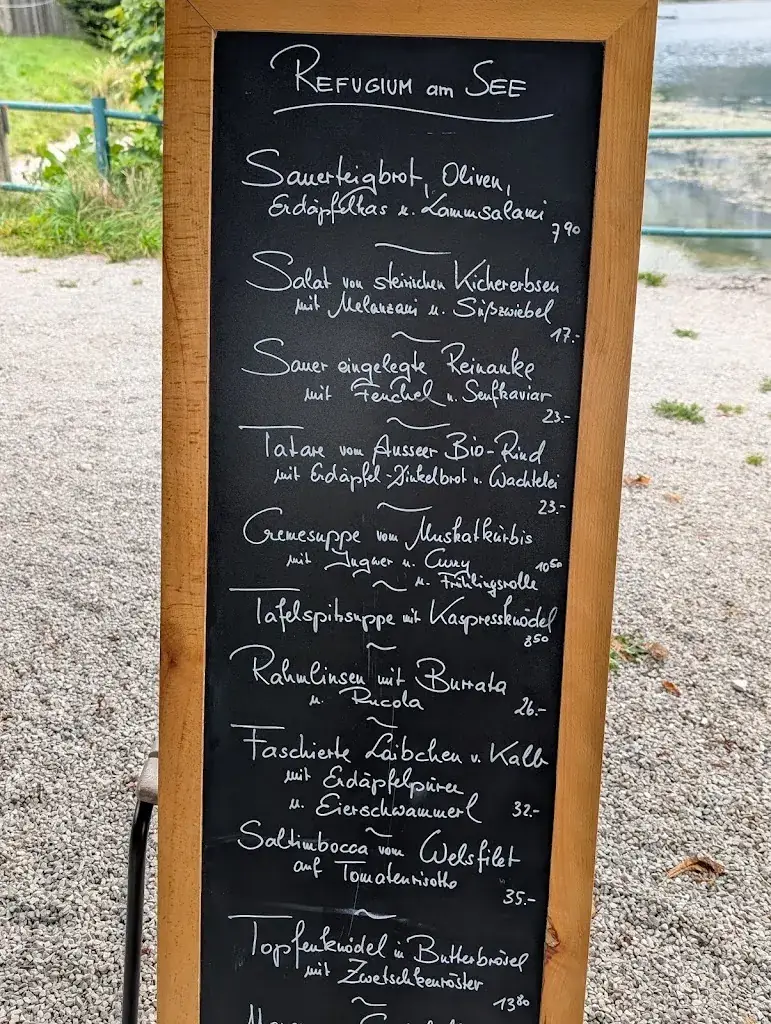 REFUGIUM am SEE
Sauerteigbrot, Oliven,
Erdäpfelkas u. Lammsalami
7,90
Salat von steirischen Kichererbsen
mit Melanzani u. Süßzwiebel
17.-
Sauer eingelegte Reinanke
mit Fenchel u. Senfkaviar
23.-
Tatare vom Ausseer Bio-Rind
mit Erdäpfel-Dinkelbrot u. Wachtelei
23.-
Cremesuppe vom Muskatkürbis
mit Ingwer u. Curry 10 50
u. Frühlingsrolle
Tafelspitzsuppe mit Kaspressknödel
8 50
Rahmlinsen mit Burrata
u. Rucola 26.-
Faschierte Laibchen v. Kalb
mit Erdäpfelpüree
u. Eierschwammerl 32.-
Saltimbocca vom Welsfilet
auf Tomatenrisotto
35.-
Topfenknödel in Butterbrösel
mit Zwetschkenröster
13 80